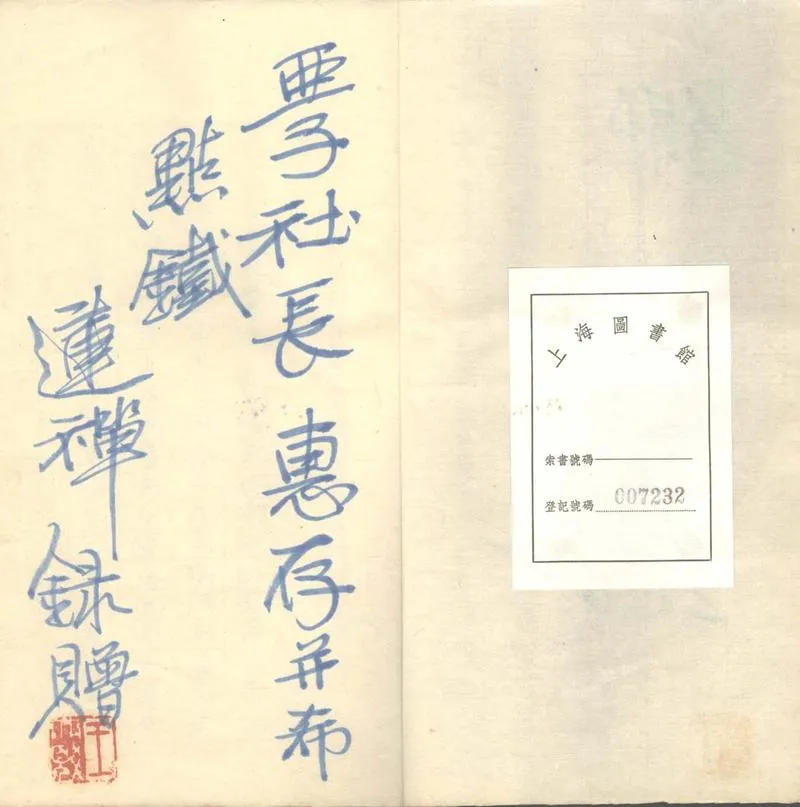 上海圖書館
索書號碼
登記號碼 007232
亜子社長 惠存并希
點鐵
蓮禪 錄贈